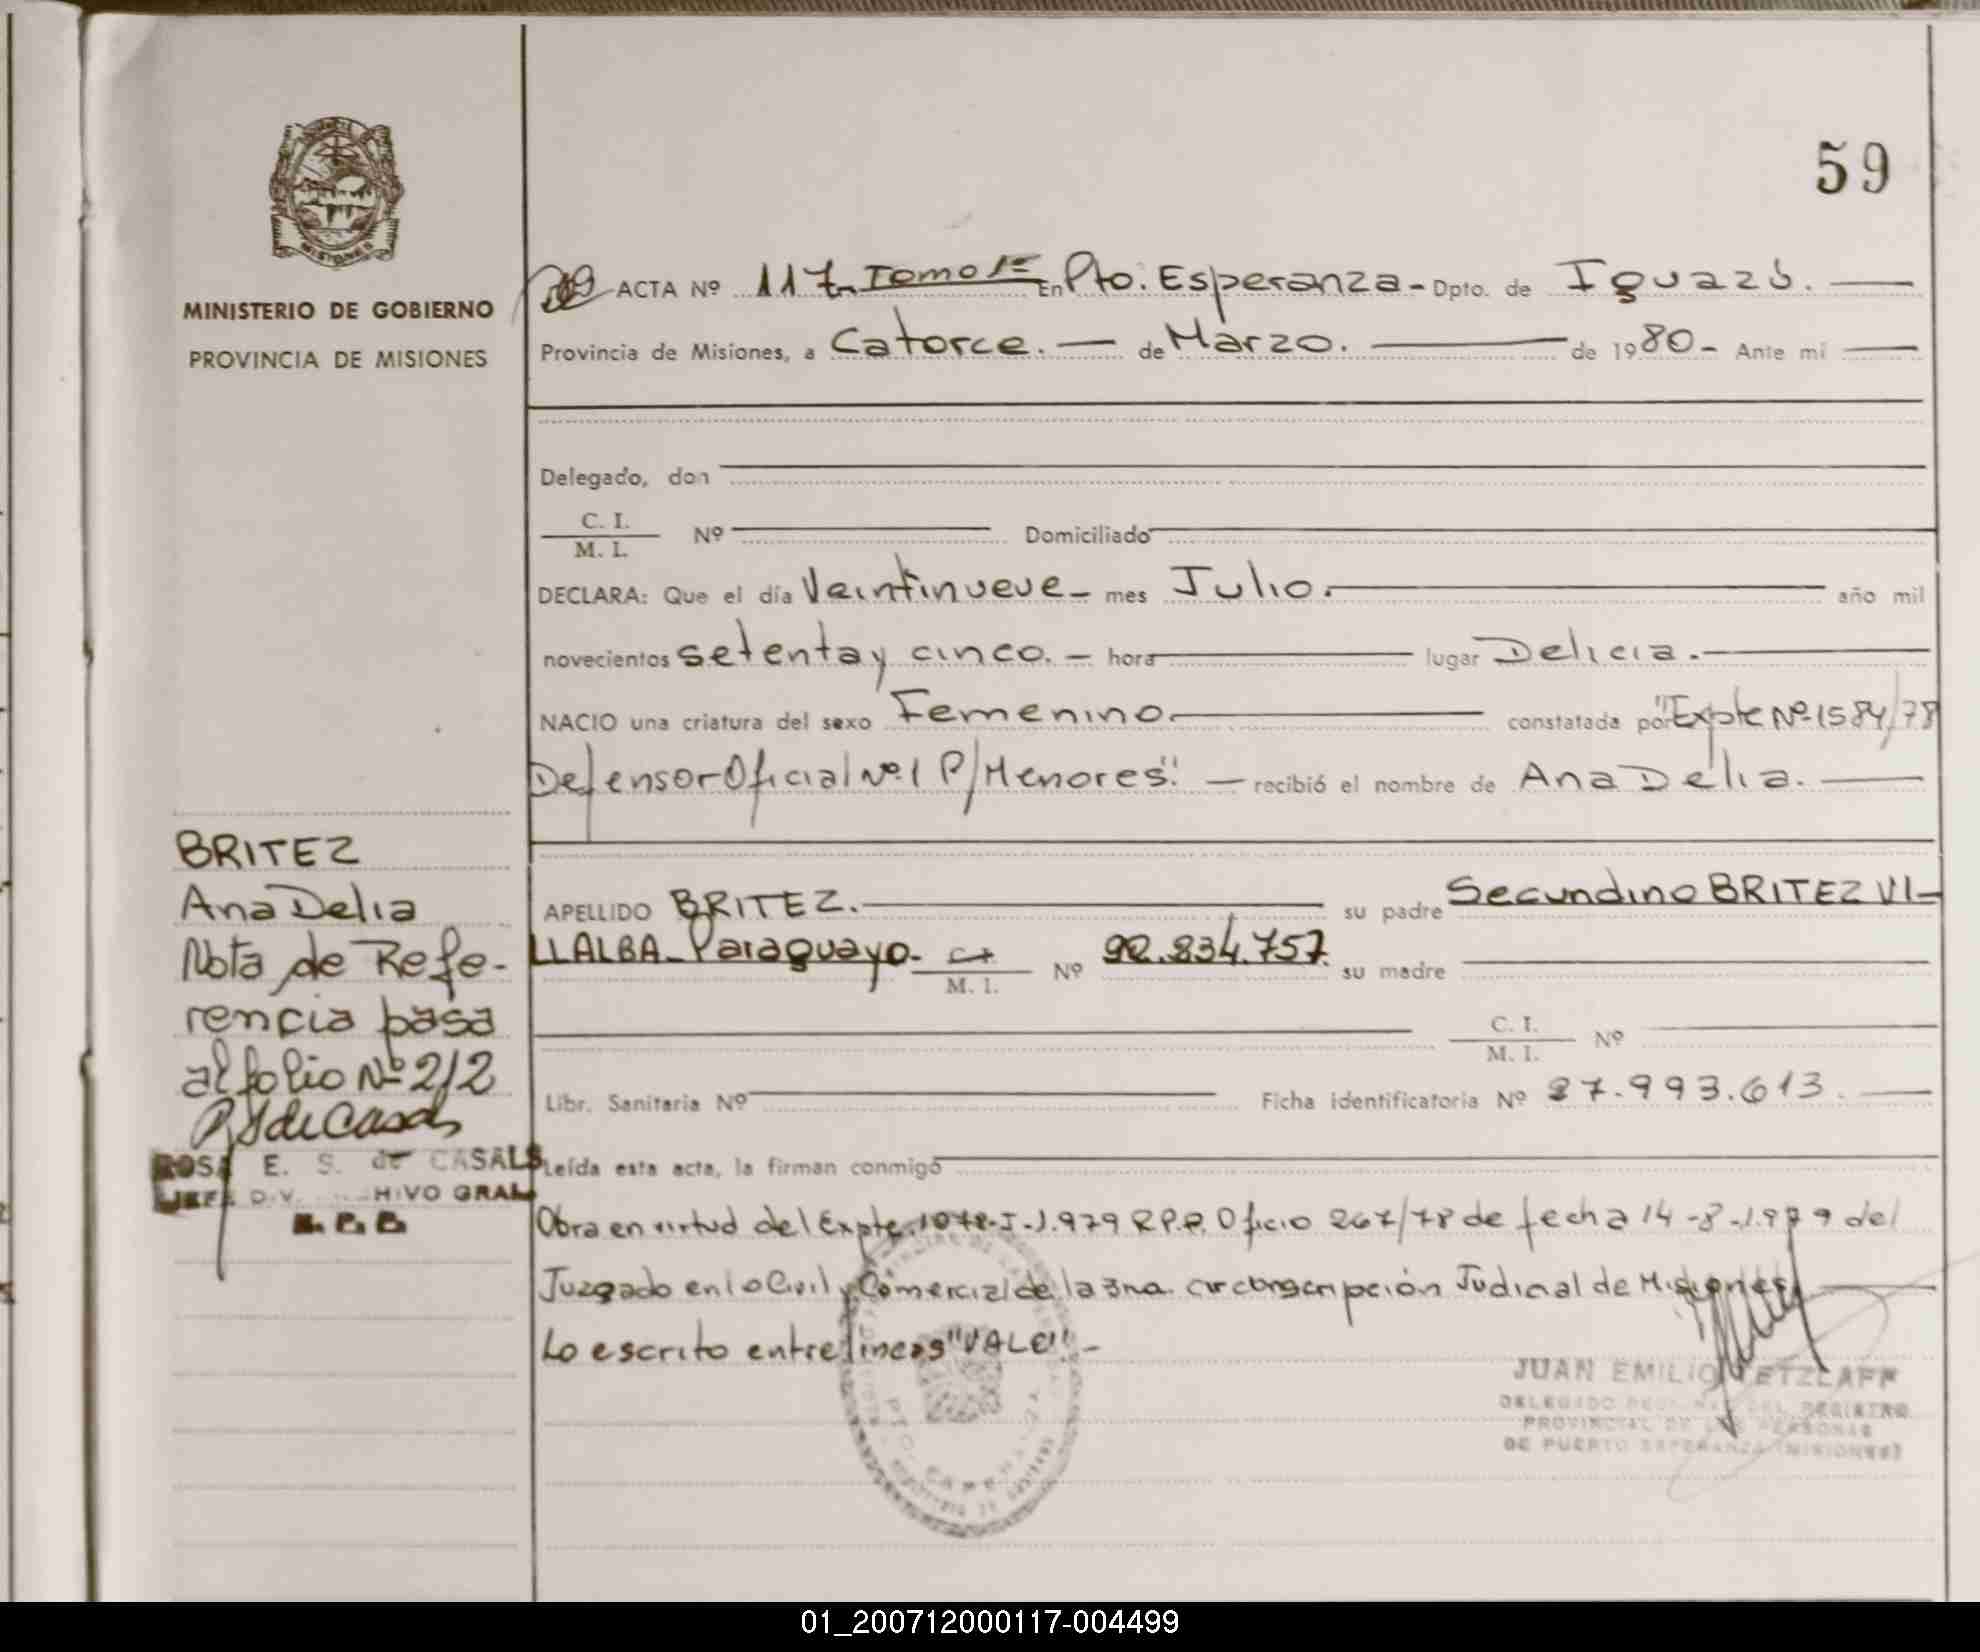 59
MISIONES
MINISTERIO DE GOBIERNO
PROVINCIA DE MISIONES
ACTA Nº 117 Tomo 1º En Pto. Esperanza - Dpto. de Iguazú.
Provincia de Misiones, a Catorce. de Marzo. de 1980 - Ante mi
Delegado, don
C. I.
M. I. Nº Domiciliado
DECLARA: Que el día Veintinueve - mes Julio. año mil
novecientos setenta y cinco. - hora lugar Delicia.
NACIO una criatura del sexo Femenino constatada por "Expte Nº 1584/78
Defensor Oficial Nº 1 P/Menores". - recibió el nombre de Ana Delia.
BRITEZ
Ana Delia
Nota de Refe-
rencia pasa
al folio Nº 212
ROSA E. S. de CASALS
JEFA DIV. ARCHIVO GRAL
APELLIDO BRITEZ. su padre Secundino BRITEZ VI-
LLALBA - Paraguayo - C.I. M. I. Nº 92.834.757. su madre
C. I.
M. I. Nº
Libr. Sanitaria Nº Ficha identificatoria Nº 27.993.613.
Leída esta acta, la firman conmigo
Obra en virtud del Expte. 1078-J-1.979 R.P.P. Oficio 267/78 de fecha 14-8-1.979 del
Juzgado en lo Civil y Comercial de la 3ra. circonscripción Judicial de Misiones
Lo escrito entrelineas "VALE". -
JUAN EMILIO PETZLAFF
DELEGADO DEL REGISTRO
PROVINCIAL DE LAS PERSONAS
DE PUERTO ESPERANZA (MISIONES)
01_200712000117-004499